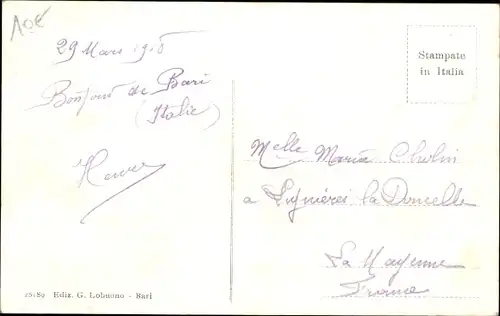 10€
29 Mars 1918
Bonjour de Bari
(Italie)
Stampate
in Italia
Melle Maria Cholin
a Lignières la Doucelle
La Mayenne
France
25189 Ediz. G. Lobuono - Bari